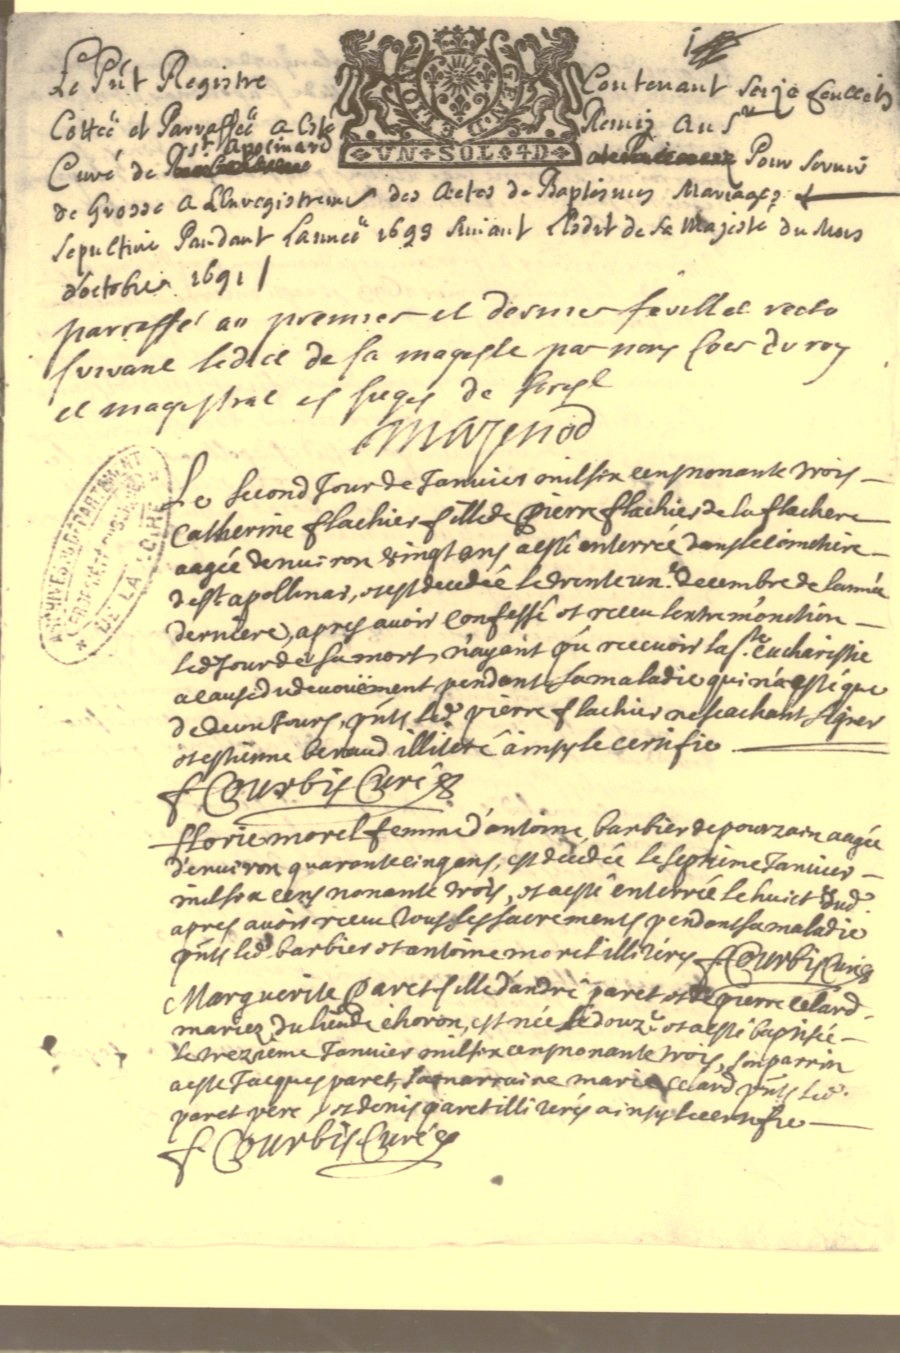 1
Le Pñt Registre Contenant seize feuillets
Cottéé et Parrafféé a Esté Remis Au Sr
St Apolinard
Curé de Pour servir
de Grosse A LEnregistrement des Actes de Baptesmes Mariages et
sepulture Pandant Lannéé 1693 Suivant LEdit de Sa Majesté du Mois
doctobre 1691
parraffé au premier et dernier feuillet recto
suivant ledict de sa mageste par nous Coer du roy
et magistrat es sieges de forest
Mazenod
VN SOL 4D
ARCHIVES DÉPARTEMENTALES
DE LA LOIRE
Le second Jour de Janvier milsix cens nonante trois
Catherine flachier fille de pierre flachier de la flachere
aagée denuiron vingt ans a esté enterrée dans le cimetiere
de st apollinar, et est decedée le trente un.e decembre de lannée
derniere, apres auoir confessé et receu lextremonction
led Jour de sa mort n'ayant pu recevoir la ste eucharistie
a cause du devoüement pendant sa maladie qui n'a esté que
de deux Jours, pñts led pierre flachier ne scachant signer
et estienne beraud illiteré ainsy le certifie
f Courbis Curé
florie morel femme d'antoine barbier de pourzain aagée
d'enuiron quarante cinq ans, est décédée le septieme Janvier
milsix cens nonante trois, et a esté enterrée le huict dud
apres auoir receu tous les sacrements pendant sa maladie
pñts led barbier et antoine morel illiterés f Courbis Curé
Marguerite paret fille d'andré paret et de pierre celard
mariez du lieu de choron, est née le douze et a esté baptisée
le trezieme Janvier milsix cens nonante trois, son parrin
a esté Jacques paret, la marraine marie celard pñts led
paret pere et denis paret illiterés ainsy le certifie
f Courbis Curé